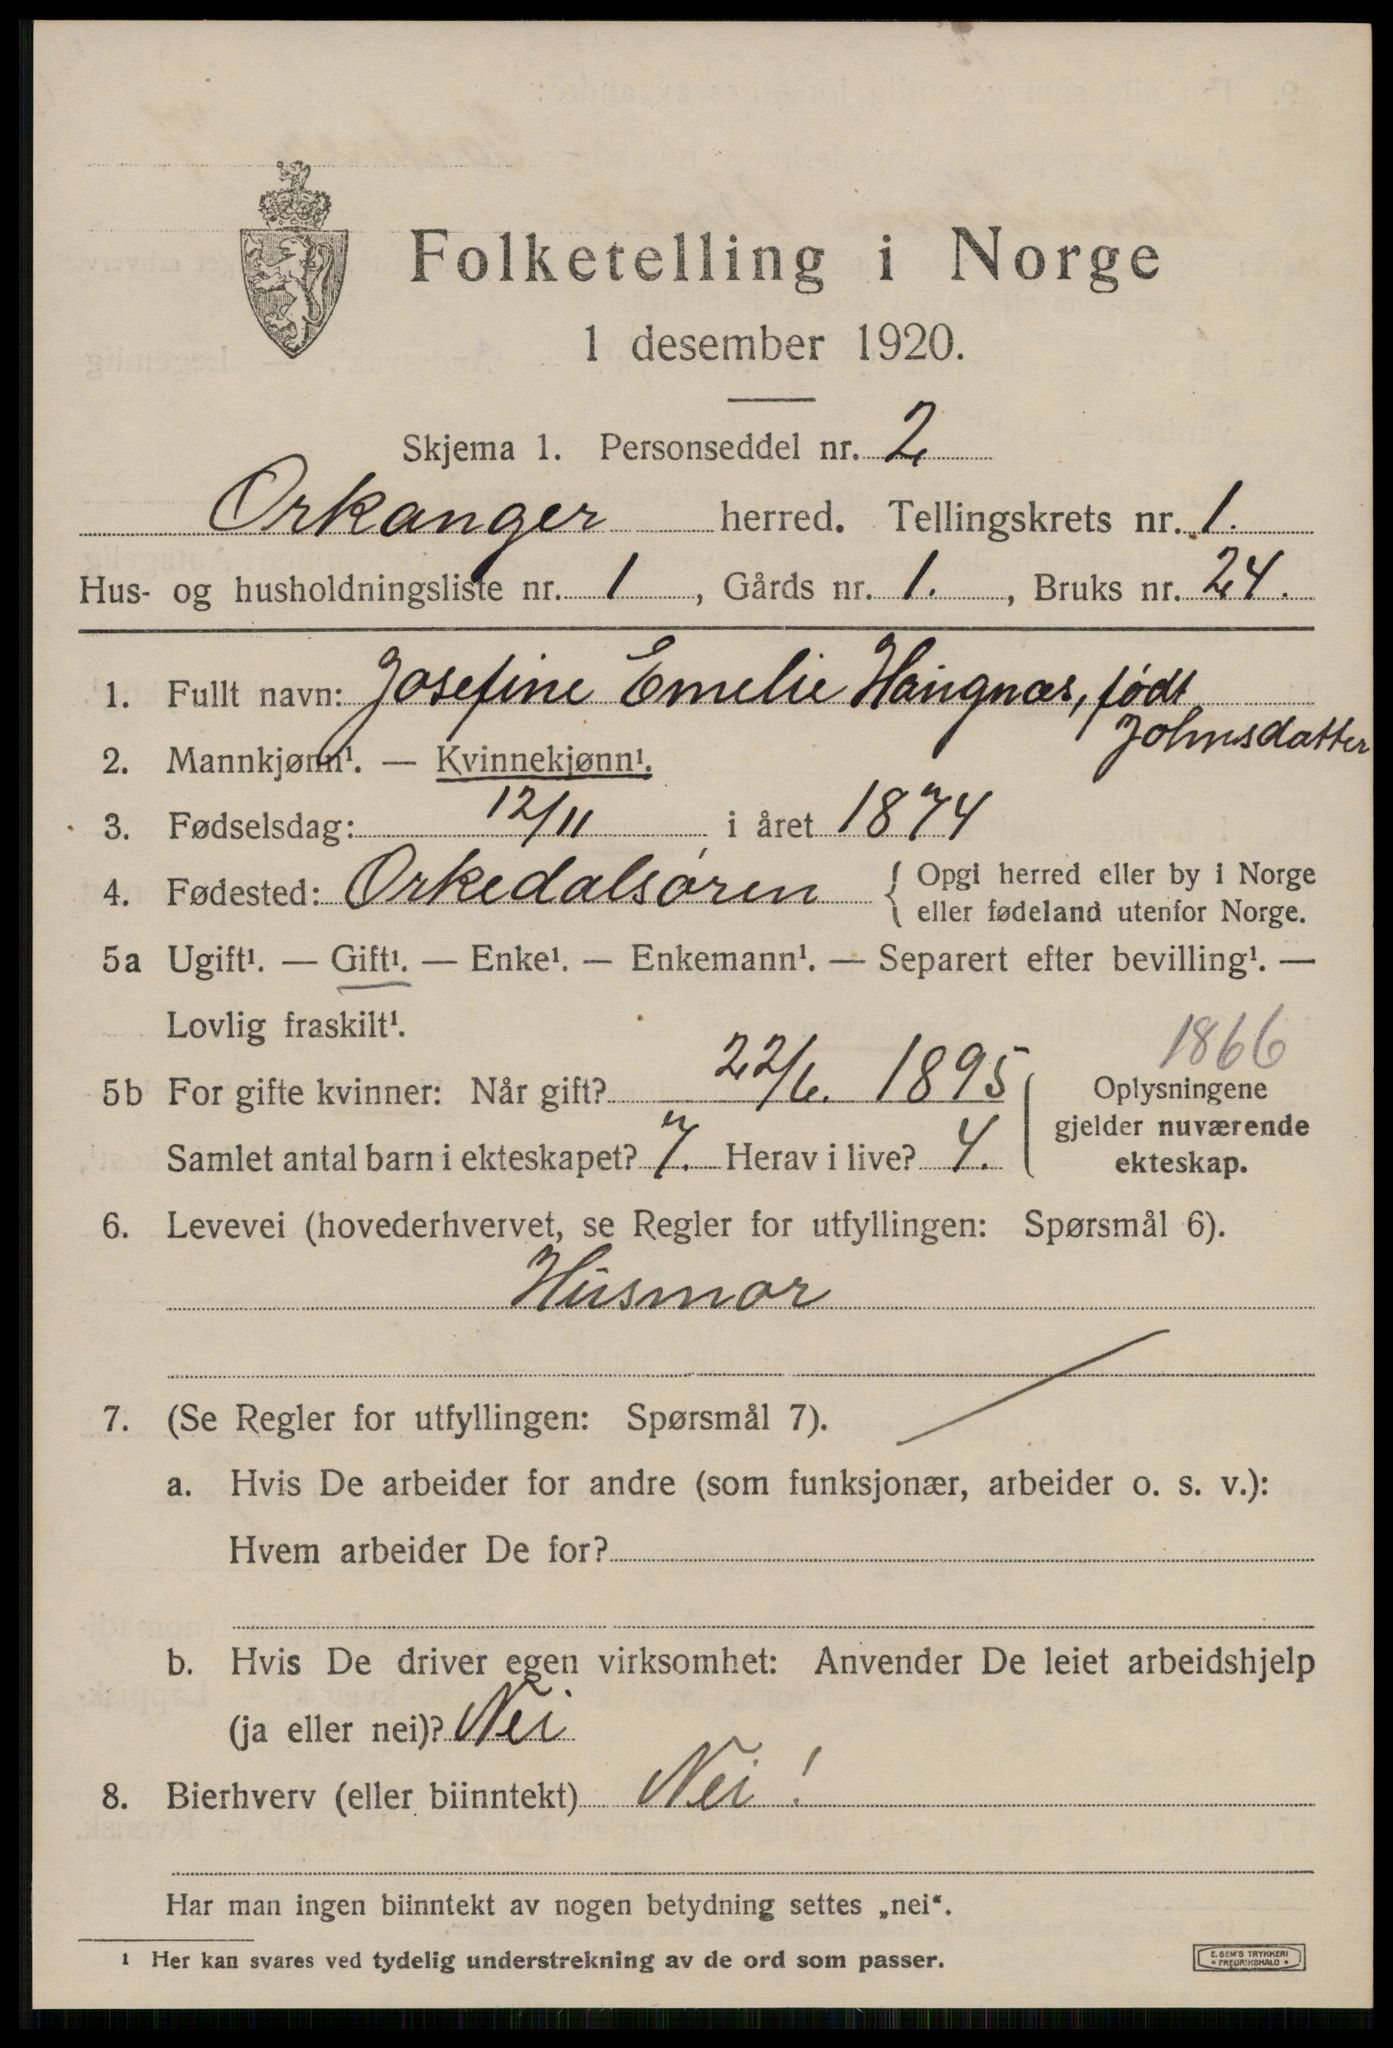 Folketelling i Norge
1 desember 1920.
Skjema 1. Personseddel nr. 2
Orkanger herred. Tellingskrets nr. 1.
Hus- og husholdningsliste nr. 1, Gårds nr. 1., Bruks nr. 24.
1. Fullt navn: Josefine Emelie Haugnæs, født
Johnsdatter
2. Mannkjønn¹. — Kvinnekjønn¹.
3. Fødselsdag: 12/11 i året 1874
4. Fødested: Orkedalsøren { Opgi herred eller by i Norge
eller fødeland utenfor Norge.
5a Ugift¹. — Gift¹. — Enke¹. — Enkemann¹. — Separert efter bevilling¹. —
Lovlig fraskilt¹.
1866
5b For gifte kvinner: Når gift? 22/6. 1895
Samlet antal barn i ekteskapet? 7. Herav i live? 4.
Oplysningene
gjelder nuværende
ekteskap.
6. Levevei (hovederhvervet, se Regler for utfyllingen: Spørsmål 6).
Husmor
7. (Se Regler for utfyllingen: Spørsmål 7).
a. Hvis De arbeider for andre (som funksjonær, arbeider o. s. v.):
Hvem arbeider De for?
b. Hvis De driver egen virksomhet: Anvender De leiet arbeidshjelp
(ja eller nei)? Nei
8. Bierhverv (eller biinntekt) Nei!
Har man ingen biinntekt av nogen betydning settes „nei“.
¹ Her kan svares ved tydelig understrekning av de ord som passer.
E. SEM'S TRYKKERI
FREDRIKSHALD